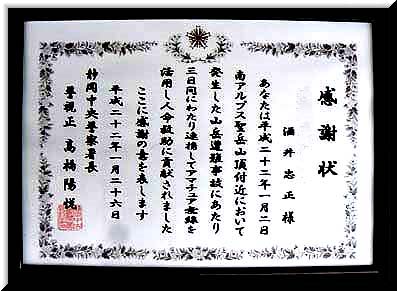 感謝状
酒井忠正様
あなたは平成二十二年一月二日
南アルプス聖岳山頂付近において
発生した山岳遭難事故にあたり
三日間にわたり連携してアマチュア無線を
活用し人命救助に貢献されました
ここに感謝の意を表します
平成二十二年一月二十六日
静岡中央警察署長
警視正 高橋陽悦